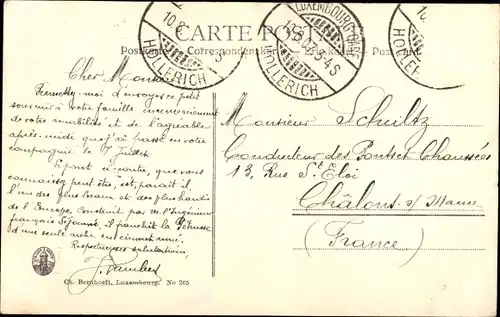 CARTE POSTALE
Postkarte - Correspondenzkarte
LUXEMBOURG-GARE
HOLLERICH
HOLLERICH
HOLLERICH
Cher Monsieur
Permettez-moi d'envoyer ce petit
souvenir à votre famille en remerciement
de votre amabilité et de l'agréable
après-midi que j'ai passé en votre
compagnie le 7 Juillet
pont ci-contre, que vous
connaissez peut-être, est, paraît-il,
l'un des plus beaux et des plus hardis
de l'Europe. Construit par M. l'Ingénieur
français Séjourné, il franchit la Pétrusse
d'une seule arche en ciment armé.
Respectueuses salutations,
Monsieur Schultz
Conducteur des Ponts et Chaussées
13, Rue St Eloi
Châlons s/ Marne
(France)
Ch. Bernhoeft, Luxembourg. No 265